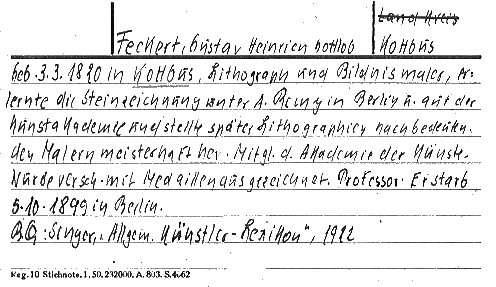 Land Kreis
Feckert, Gustav Heinrich Gottlob Kottbus
geb. 3.3.1820 in Kottbus, Lithograph und Bildnismaler, er-
lernte die Steinzeichnung unter A. Remy in Berlin u. auf der
Kunstakademie und stellte später Lithographien nach bedeuten-
den Malern meisterhaft her. Mitgl. d. Akademie der Künste.
Wurde versch. mit Medaillen ausgezeichnet. Professor. Er starb
5.10.1899 in Berlin.
Singer, Allgem. Künstler-Lexikon", 1922
Reg. 10 Stichnote. 1. 50. 232000. A. 803. S. 4062